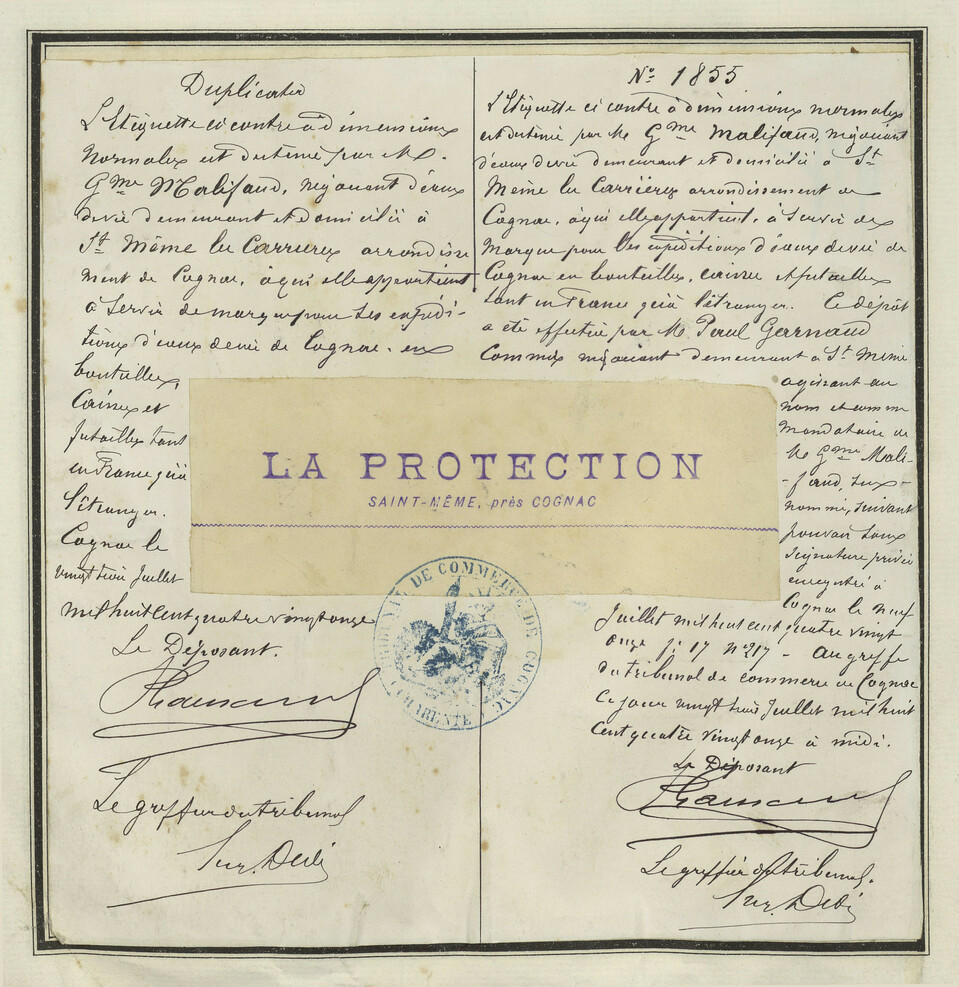 Duplicata
L'Etiquette ci contre à dimensions
normales est destinée par M.
Gme Malifaud, négociant d'eaux
de vie demeurant et domicilié à
St Même les Carrières arrondisse
ment de Cognac, à qui elle appartient
à servir de marque pour ses expédi-
tions d'eaux de vie de Cognac en
bouteilles,
Caisses et
futailles tant
en France qu'à
l'étranger.
Cognac le
vingt trois Juillet
mil huit cent quatre vingt onze
Le Déposant.
Le greffier du tribunal
No 1855
L'Etiquette ci contre à dimensions normales
est destinée par M. Gme Malifaud, négociant
d'eaux de vie demeurant et domicilié à St
Même les Carrières arrondissement de
Cognac, à qui elle appartient, à servir de
Marque pour les expéditions d'eaux de vie de
Cognac en bouteilles, caisses et futailles
tant en France qu'à l'étranger. Ce dépôt
a été effectué par M. Paul Garnaud
Commis négociant demeurant à St Même
agissant au
nom et comme
Mandataire de
M. Gme Mali-
faud, sus-
nommé, suivant
pouvoir sous
signature privée
enregistré à
Cognac le neuf
Juillet mil huit cent quatre vingt
onze fo 17 No 217 - Au greffe
du tribunal de commerce de Cognac
Ce jour vingt trois Juillet mil huit
cent quatre vingt onze à midi.
Le Déposant
Le greffier du tribunal.
LA PROTECTION
SAINT-MÊME, près COGNAC
TRIBUNAL DE COMMERCE DE COGNAC
CHARENTE